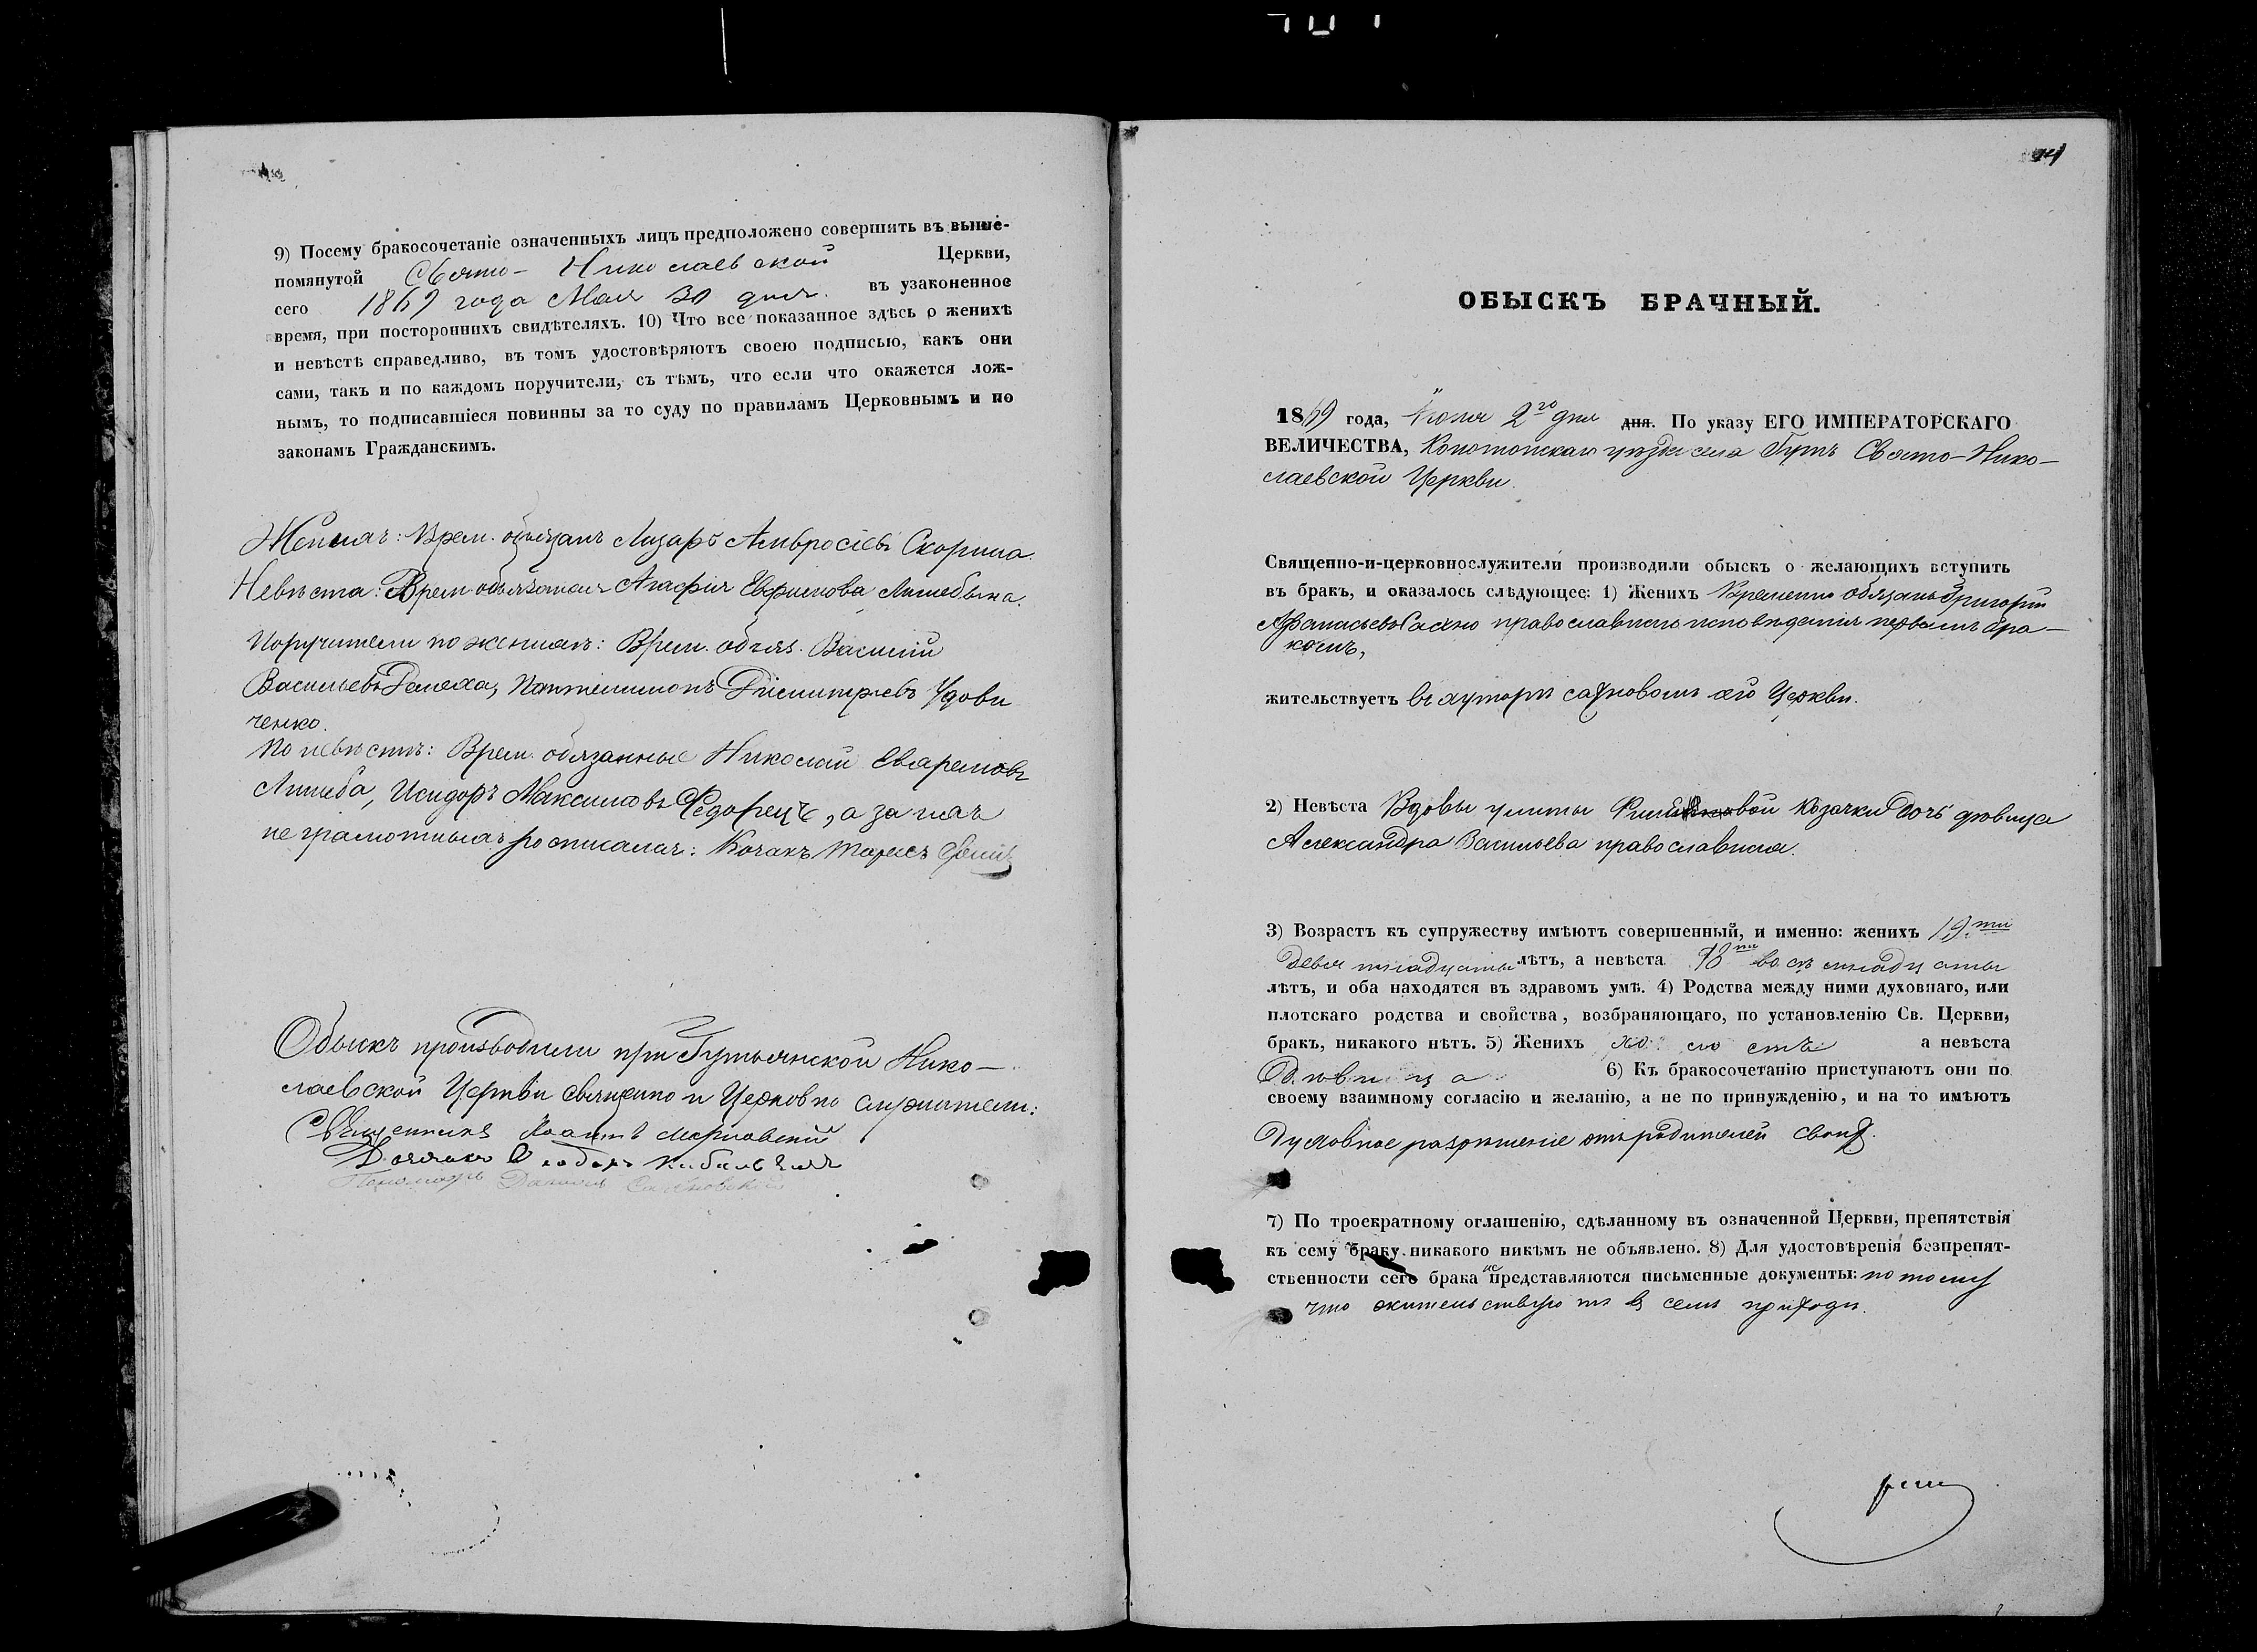 9) Посему бракосочетаніе означенныхъ лицъ предположено совершить въ выше-
помянутой Свято-Николаевской Церкви,
сего 1869 года Мая 30 дня. въ узаконенное
время, при постороннихъ свидѣтеляхъ. 10) Что все показанное здѣсь о женихѣ
и невѣстѣ справедливо, въ томъ удостовѣряютъ своею подписью, какъ они
сами, такъ и по каждомъ поручители, съ тѣмъ, что если что окажется лож-
нымъ, то подписавшіеся повинны за то суду по правиламъ Церковнымъ и по
законамъ Гражданскимъ.
Женихъ: Врем. обязанъ Лазарь Амвросіевъ Скорина.
Невѣста: Врем. обязанная Агафія Евфимова
Поручители по женихѣ: Врем. обяз. Василій
Васильевъ Пантелимонъ Димитріевъ Удови
ченко.
По невѣстѣ: Врем. обязанные Николай
Исидоръ Максимовъ Федорецъ, а за нихъ
неграмотныхъ росписался: Козакъ Тарасъ
Обыскъ производили при Гутянской Нико-
лаевской Церкви священно и Церковно служители:
Священникъ
Дьячокъ
Пономарь
ОБЫСКЪ БРАЧНЫЙ.
1869 года, Іюня 2го дня дня. По указу ЕГО ИМПЕРАТОРСКАГО
ВЕЛИЧЕСТВА, Конотопскаго уѣзда села Гутъ Свято-Нико-
лаевской Церкви.
Священно-и-церковнослужители производили обыскъ о желающихъ вступить
въ бракъ, и оказалось слѣдующее: 1) Женихъ Временно обязанъ Григорій
Афанасьевъ православнаго исповѣданія первымъ бра-
комъ,
жительствуетъ въ хуторѣ сахновомъ сего Церкви.
2) Невѣста Вдовы улиты козачки дочь дѣвица
Александра Васильева православная.
3) Возрастъ къ супружеству имѣютъ совершенный, и именно: женихъ 19ти
девятнадцати лѣтъ, а невѣста 18ти восемнадцати
лѣтъ, и оба находятся въ здравомъ умѣ. 4) Родства между ними духовнаго, или
плотскаго родства и свойства, возбраняющаго, по установленію Св. Церкви,
бракъ, никакого нѣтъ. 5) Женихъ холостъ а невѣста
Дѣвица 6) Къ бракосочетанію приступаютъ они по
своему взаимному согласію и желанію, а не по принужденію, и на то имѣютъ
Духовное разрѣшеніе отъ родителей своихъ.
7) По троекратному оглашенію, сдѣланному въ означенной Церкви, препятствія
къ сему браку никакого никѣмъ не объявлено. 8) Для удостовѣренія безпрепят-
ственности сего брака не представляются письменные документы: потому
что жительствуютъ въ семъ приходѣ.